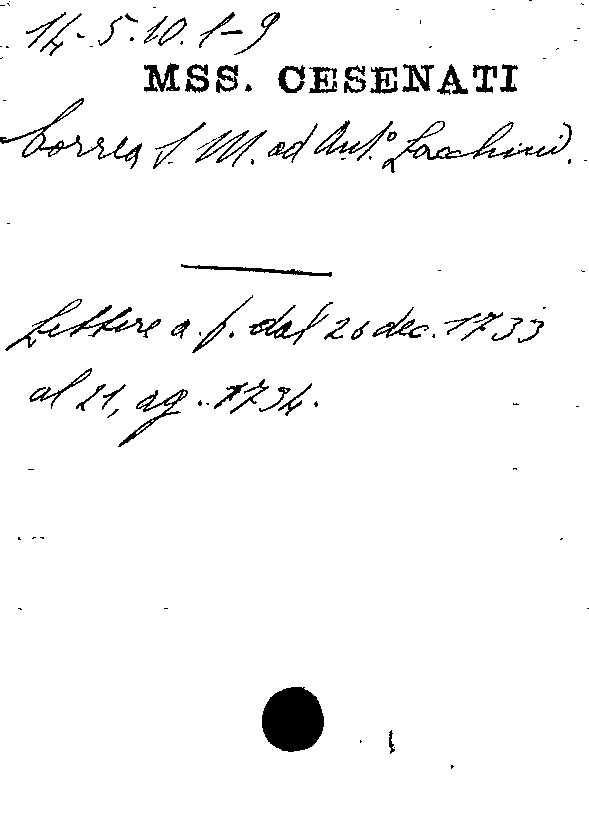 14. 5. 10. 1-9
MSS. CESENATI
Correa S. M. ad Ant.° Zacchini.
Lettere a. f. dal 26 dec. 1733
al 21, ag. 1734.